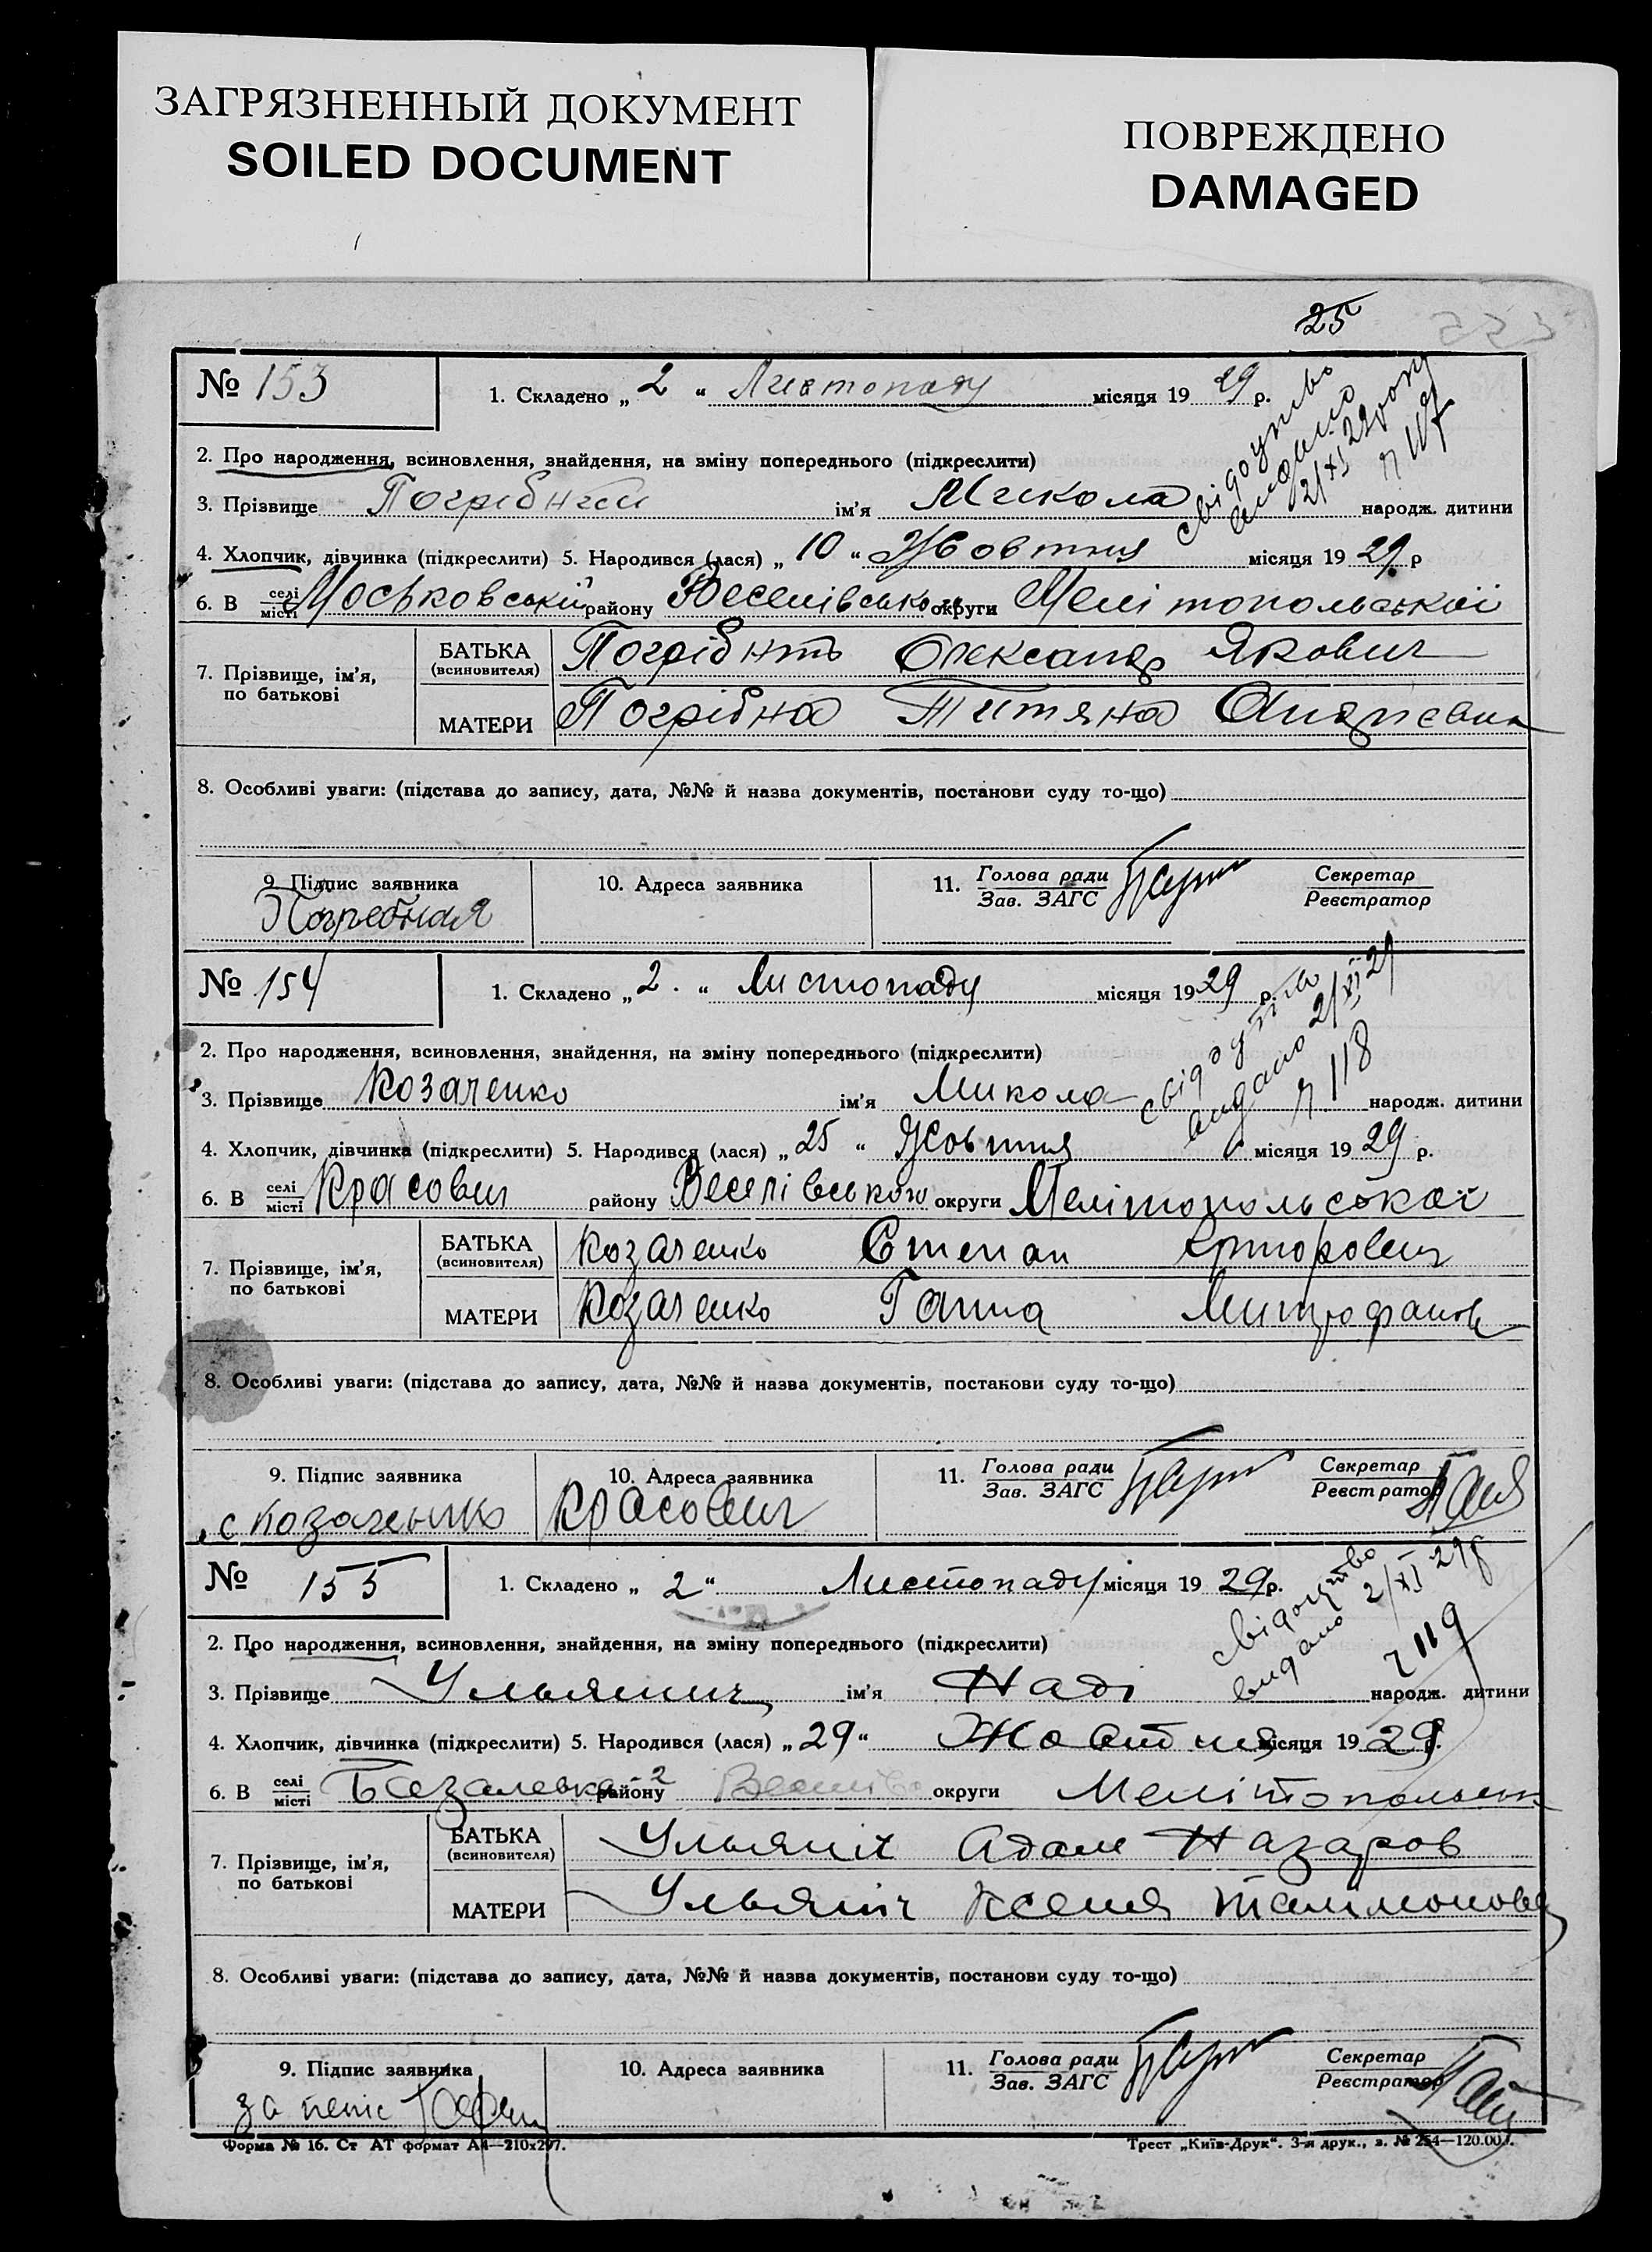 ЗАГРЯЗНЕННЫЙ ДОКУМЕНТ
SOILED DOCUMENT
ПОВРЕЖДЕНО
DAMAGED
25
№ 153
1. Складено „ 2 “ Листопаду місяця 19 29 р.
свідоцтво
видано
2/XI 29 року
2. Про народження, всиновлення, знайдення, на зміну попереднього (підкреслити)
3. Прізвище Погрібний ім'я Микола народж. дитини
4. Хлопчик, дівчинка (підкреслити) 5. Народився (лася) „ 10 “ Жовтня місяця 19 29 р
6. В селі місті Моськовський району Веселівсько округи Мелітопольської
7. Прізвище, ім'я, по батькові
БАТЬКА (всиновителя) Олександр Якович
МАТЕРИ Погрібна Титяна
8. Особливі уваги: (підстава до запису, дата, №№ й назва документів, постанови суду то-що)
9. Підпис заявника
10. Адреса заявника
11. Голова ради
Зав. ЗАГС
Секретар
Реєстратор
Погребная
№ 154
1. Складено „ 2. “ Листопаду місяця 19 29 р.
свідоцтво
видано 2/XI 29
118
2. Про народження, всиновлення, знайдення, на зміну попереднього (підкреслити)
3. Прізвище Козаченко ім'я Микола народж. дитини
4. Хлопчик, дівчинка (підкреслити) 5. Народився (лася) „ 25 “ Жовтня місяця 19 29 р.
6. В селі місті району Веселівського округи Мелітопольської
7. Прізвище, ім'я, по батькові
БАТЬКА (всиновителя) Козаченко Степан
МАТЕРИ Козаченко Ганна Митрофанов
8. Особливі уваги: (підстава до запису, дата, №№ й назва документів, постанови суду то-що)
9. Підпис заявника
10. Адреса заявника
11. Голова ради
Зав. ЗАГС
Секретар
Реєстратор
№ 155
1. Складено „ 2 “ Листопаду місяця 19 29 р.
свідоцтво
видано 2/XI 29 р
119
2. Про народження, всиновлення, знайдення, на зміну попереднього (підкреслити)
3. Прізвище Ульянич ім'я Наді народж. дитини
4. Хлопчик, дівчинка (підкреслити) 5. Народився (лася) „ 29 “ Жовтня місяця 19 29 р.
6. В селі місті району округи
7. Прізвище, ім'я, по батькові
БАТЬКА (всиновителя) Ульяніч Адам Назаров
МАТЕРИ Ульяніч Ксенія
8. Особливі уваги: (підстава до запису, дата, №№ й назва документів, постанови суду то-що)
9. Підпис заявника
10. Адреса заявника
11. Голова ради
Зав. ЗАГС
Секретар
Реєстратор
Форма № 16. Ст АТ формат А4—210х297.
Трест „Київ-Друк“. 3-я друк., з. № 254—120.000.